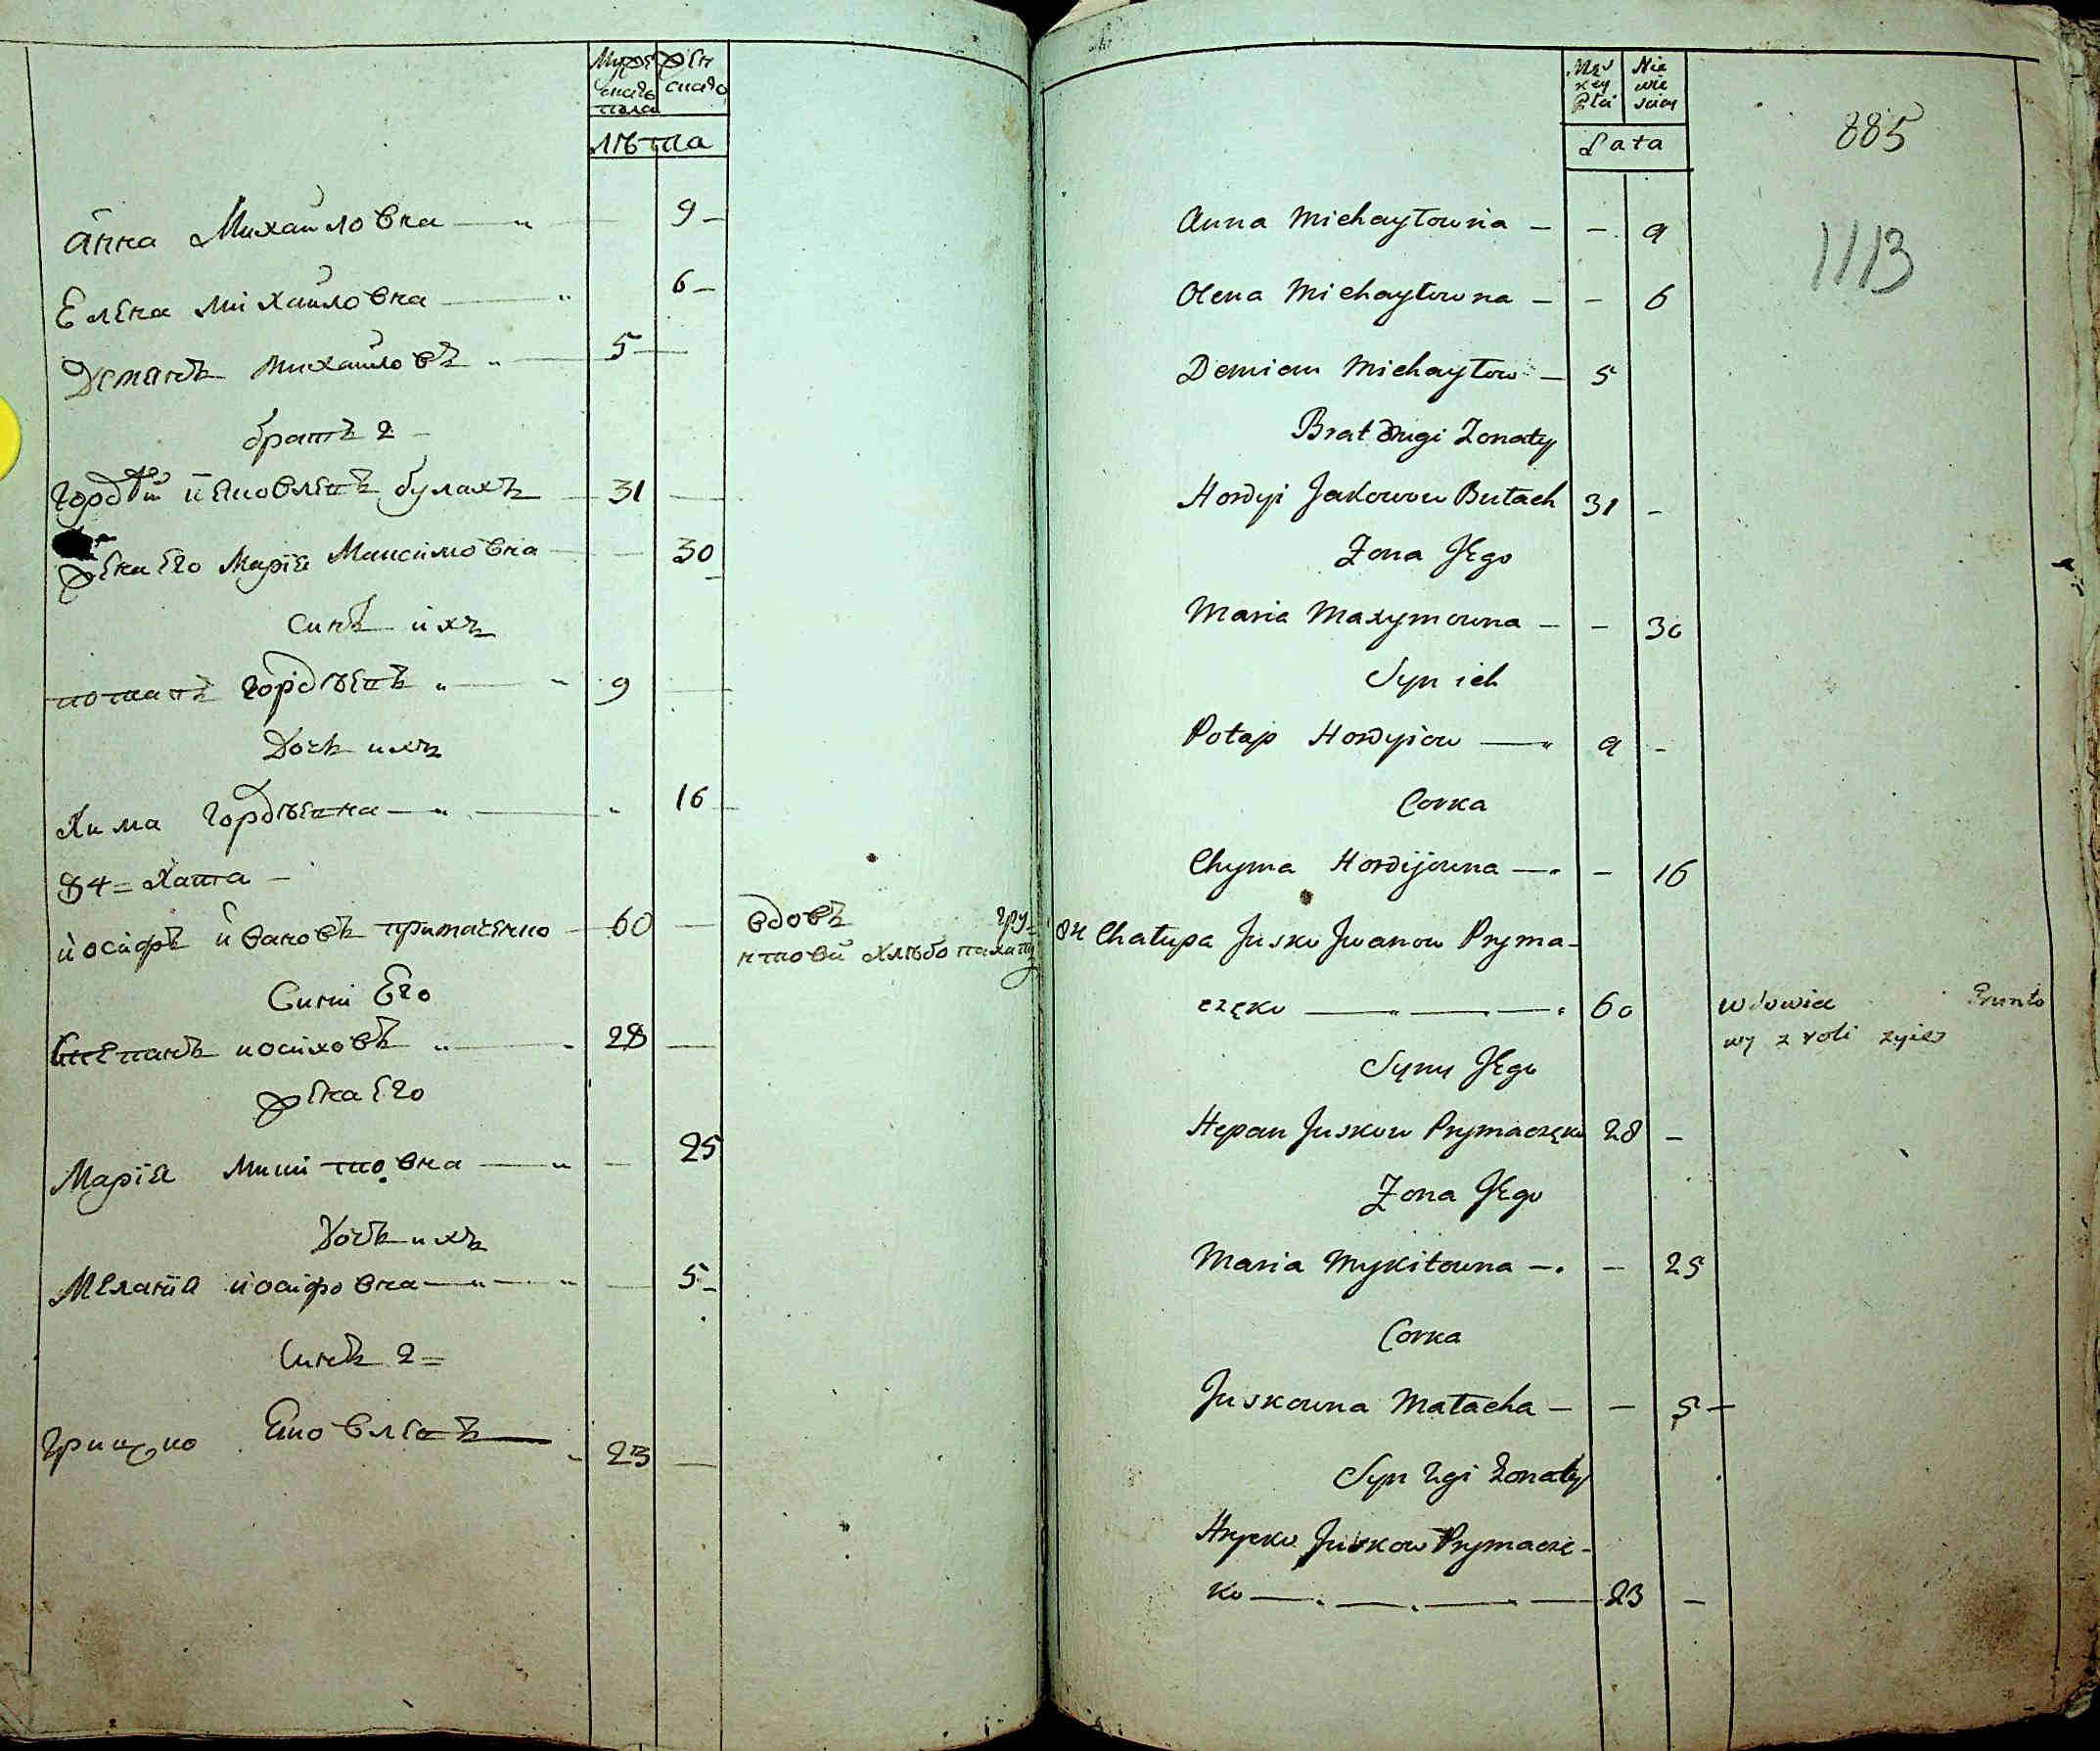 Мужескаго пола
женскаго
лѣта
Анна Михайловна — „ — 9 –
Елена Михайловна — „ 6 –
Деманъ Михайловъ „ — 5 —
братъ 2 –
Гордѣй Яковлевъ Булахъ — 31 —
Жена Его Марія Максимовна — — 30
Синъ ихъ
Потапъ Гордѣевъ „ — „ 9 —
Дочь ихъ
Хима Гордѣевна — „ — „ 16 –
84 = Хата –
Йосифъ Ивановъ Примаченко — 60 — вдовъ гру-
нтовый Хлѣбопахатц
Сини Его
Степанъ Йосиховъ „ — „ 28 —
Жена Его
Марія Микитовна — „ — 25
Дочь ихъ
Меланія Йосифовна — „ — „ — 5 –
Синъ 2 =
Грицко Яковлевъ — „ 23 —
Męz
key
Płci
Nie
wie
sciey
Lata
885
1113
Anna Michayłowna – – 9
Olena Michayłowna – – 6
Demian Michayłow – 5
Brat drugi Żonaty
Hordyi Jakowow Bułach 31 –
Żona Jego
Maria Maxymowna – – 30
Syn ich
Potap Hordyiow — „ 9 –
Corka
Chyma Hordijowna — „ – 16
84 Chałupa Jusko Jwanow Pryma-
częko — „ — „ — „ 60 wdowiec Grunto
wy z roli zyie
Syny Jego
Stepan Juskow Prymaczęko 28 –
Żona Jego
Maria Mykitowna – . – 25
Corka
Juskowna Małacha – – 5 –
Syn 2gi Żonaty
Hrycko Juskow Prymacze-
ko — . — . — . — 23 –